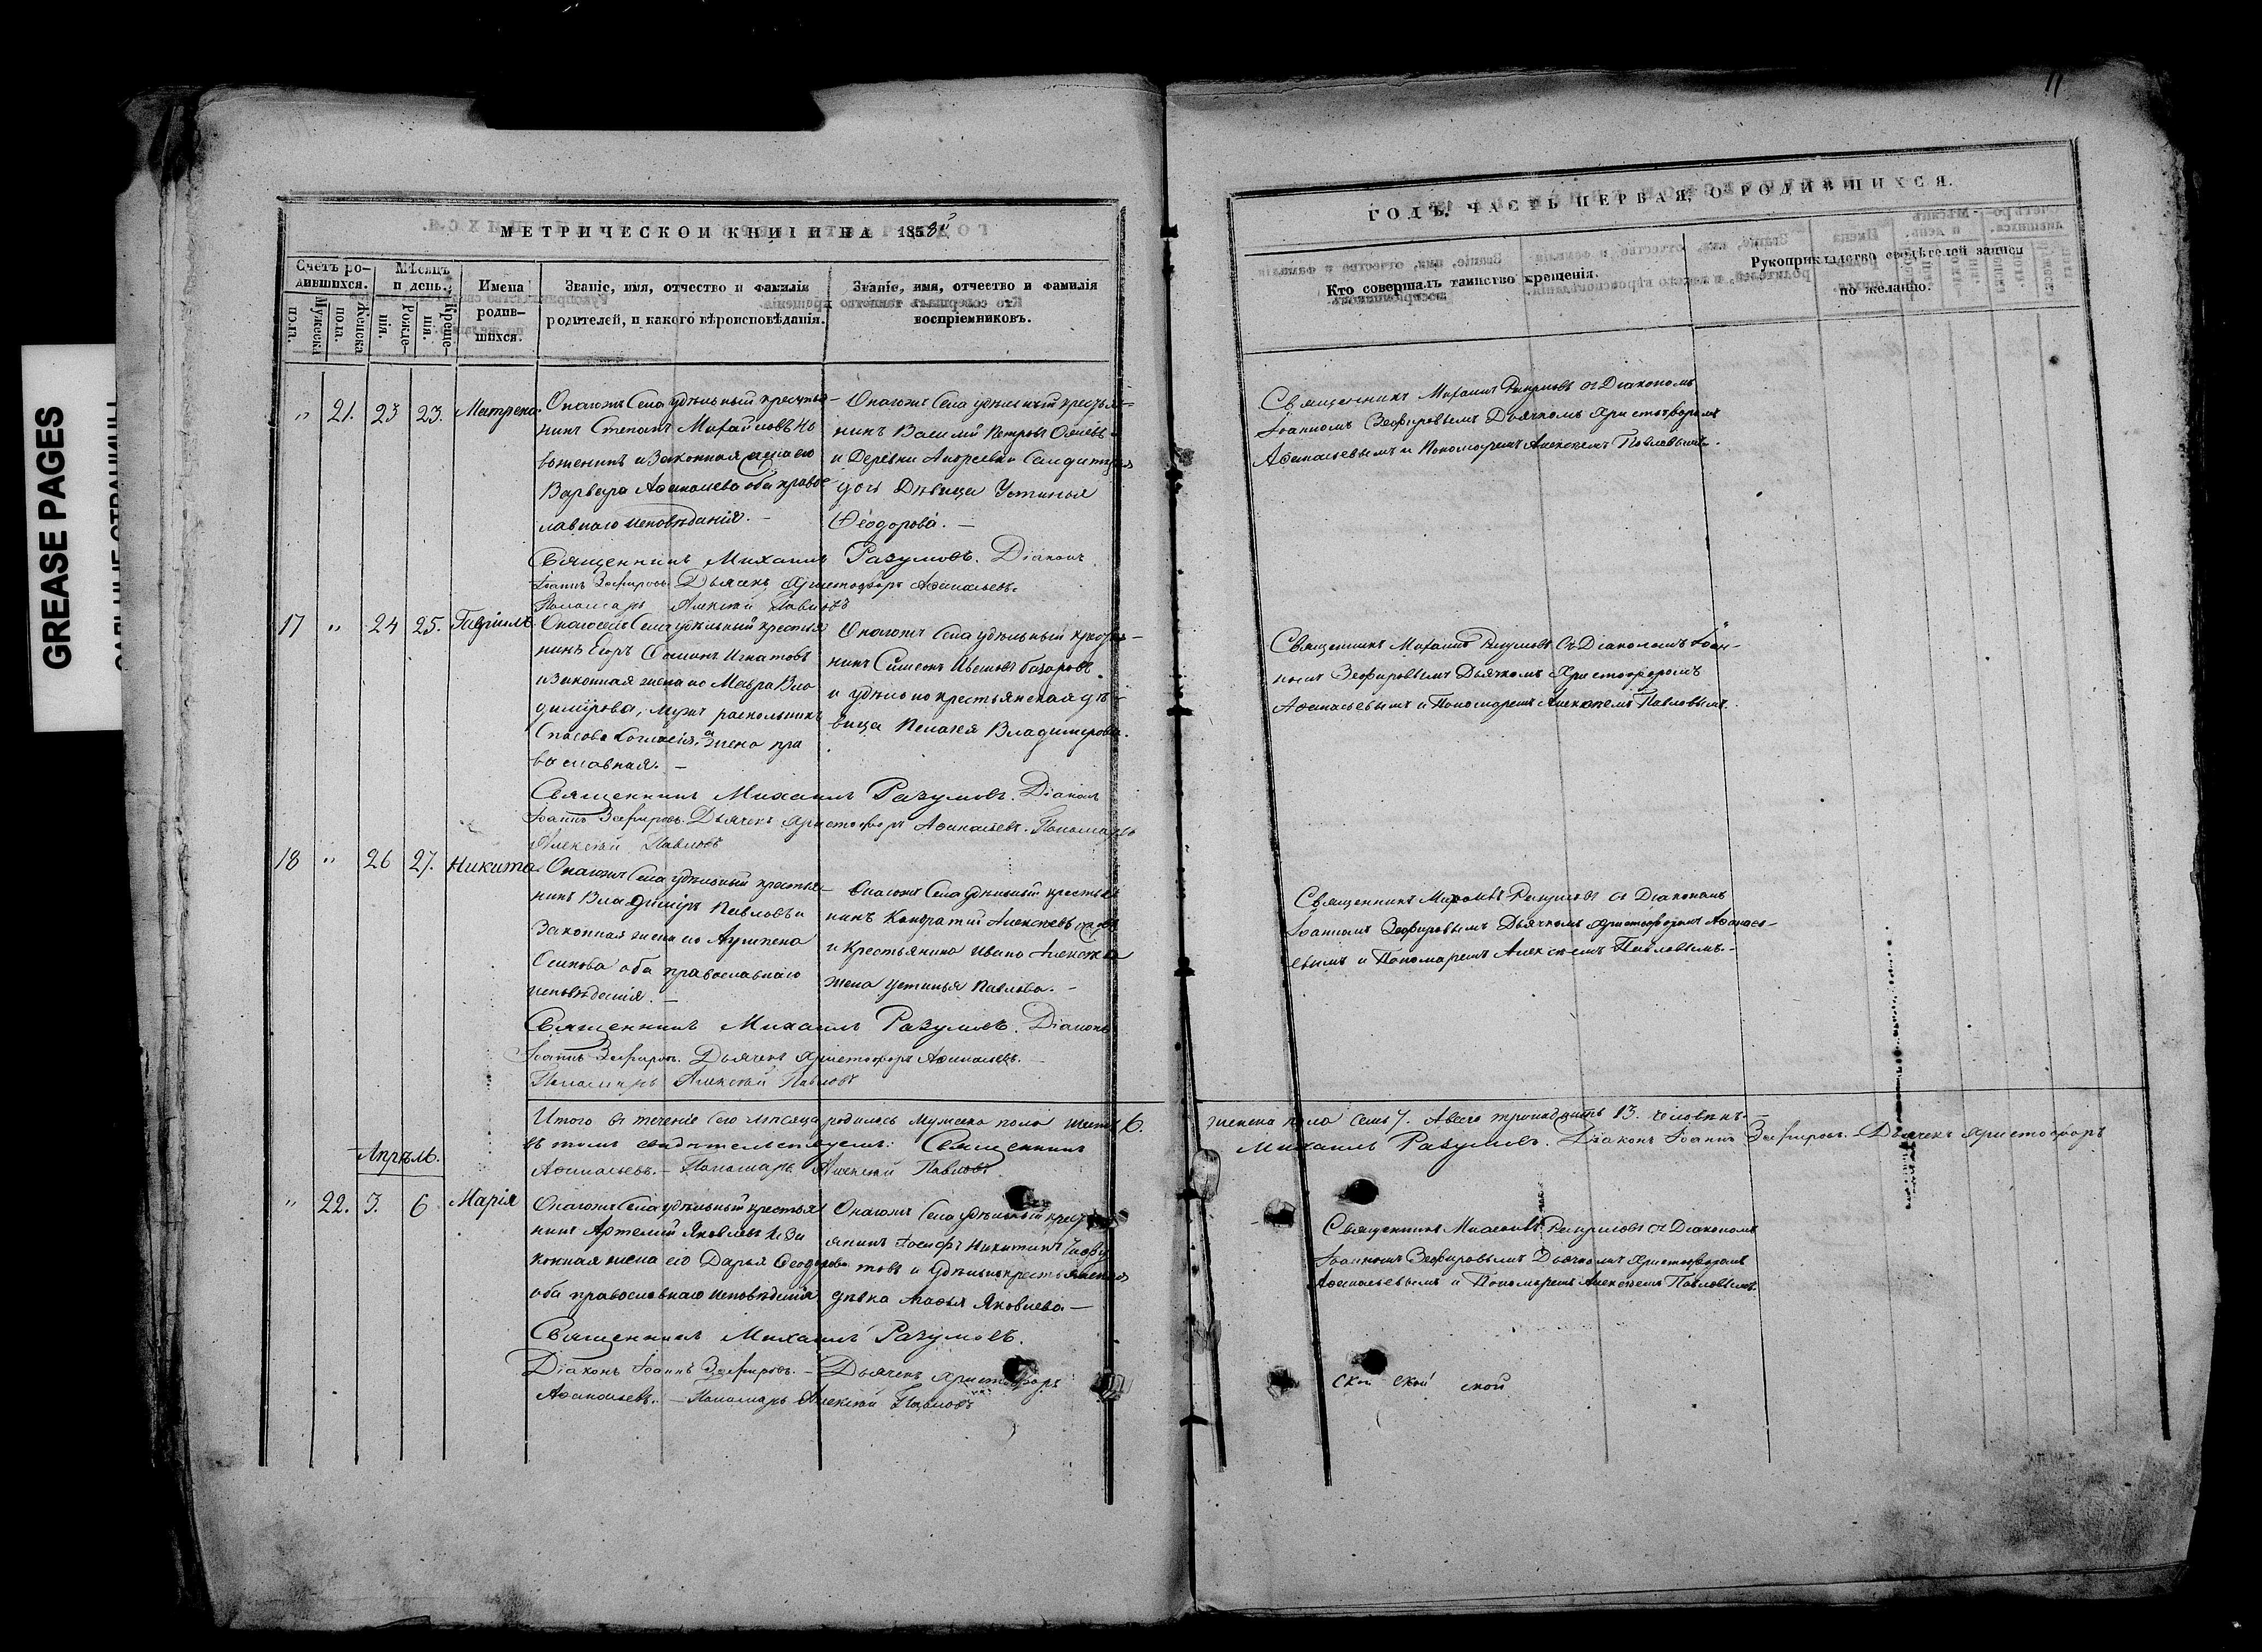 GREASE PAGES
11
МЕТРИЧЕСКОЙ КНИГИ НА 1858й
ГОДЪ, ЧАСТЬ ПЕРВАЯ, О РОДИВШИХСЯ.
Счетъ ро-
дившихся.
Мужеска
пола.
Женска
пола.
Мѣсяцъ
и день.
Рожде-
нія.
Креще-
нія.
Имена
родив-
шихся.
Званіе, имя, отчество и фамилія
родителей, и какого вѣроисповѣданія.
Званіе, имя, отчество и фамилія
воспріемниковъ.
Кто совершалъ таинство крещенія.
Рукоприкладство свидѣтелей записи
по желанію.
" 21. 23 23. Матрена
Онагожъ Села удѣльный крестья-
нинъ Степанъ Михайловъ
и законная жена его
Варвара Аѳанасьева оба право-
славнаго исповѣданія. —
Онагожъ Села удѣльный крестья-
нинъ Василій Петровъ
и Деревни Андреевки
дочь Дѣвица Устинья
Ѳеодорова. —
Священникъ Михаилъ Разумовъ съ Діакономъ
Іоанномъ Зефировымъ Дьячкомъ Христофоромъ
Аѳанасьевымъ и Пономаремъ Алексѣемъ Павловымъ.
Священникъ Михаилъ Разумовъ. Діаконъ
Іоаннъ Зефировъ. Дьячекъ Христофоръ Аѳанасьевъ.
Пономарь Алексѣй Павловъ
17 " 24 25. Гавріилъ
Онагожъ Села удѣльный крестья
нинъ Егоръ Игнатовъ
и законная жена его Мавра Вла
димірова, мужъ раскольникъ
Спасова согласія, а жена пра
вославная. —
Онагожъ Села удѣльный крестья-
нинъ Симеонъ Ивановъ Базаровъ
и удѣльно крестьянская дѣ-
вица Пелагея Владимірова.
Священникъ Михаилъ Разумовъ Съ Діакономъ Іоан-
номъ Зефировымъ Дьячкомъ Христофоромъ
Аѳанасьевымъ и Пономаремъ Алексѣемъ Павловымъ.
Священникъ Михаилъ Разумовъ. Діаконъ
Іоаннъ Зефировъ. Дьячекъ Христофоръ Аѳанасьевъ. Пономарь
Алексѣй Павловъ
18 " 26 27. Никита
Онагожъ Села удѣльный крестья-
нинъ Владиміръ Павловъ и
законная жена его Агрипена
Осипова оба православнаго
исповѣданія. —
Онагожъ Села удѣльный крестья
нинъ Кондратій Алексѣевъ
и Крестьянина Ивана Алексѣева
жена Устинья Павлова. —
Священникъ Михаилъ Разумовъ съ Діакономъ
Іоанномъ Зефировымъ Дьячкомъ Христофоромъ Аѳанась-
евымъ и Пономаремъ Алексѣемъ Павловымъ. —
Священникъ Михаилъ Разумовъ. Діаконъ
Іоаннъ Зефировъ. Дьячекъ Христофоръ Аѳанасьевъ. —
Пономарь Алексѣй Павловъ
Итого въ теченіе сего мѣсяца родилось Мужеска пола шесть 6. женска пола семь 7. А всего тринадцать 13. человѣкъ. —
въ томъ свидѣтельствуемъ: Священникъ Михаилъ Разумовъ. Діаконъ Іоаннъ Зефировъ. Дьячекъ Христофоръ
Аѳанасьевъ. — Пономарь Алексѣй Павловъ
Апрѣль.
" 22. 3. 6 Марія
Онагожъ Села удѣльный крестья
нинъ Артемій Яковлевъ и за
конная жена его Дарья Ѳеодорова
оба православнаго исповѣданія
Онагожъ Села удѣльный крест
янинъ Іосифъ Никитинъ
и удѣльно крестьянская
дѣвка Яковлева —
Священникъ Михаилъ Разумовъ съ Діакономъ
Іоанномъ Зефировымъ Дьячкомъ Христофоромъ
Аѳанасьевымъ и Пономаремъ Алексѣемъ Павловымъ.
Священникъ Михаилъ Разумовъ.
Діаконъ Іоаннъ Зефировъ. — Дьячекъ Христофоръ
Аѳанасьевъ. — Пономарь Алексѣй Павловъ
ской ской ской